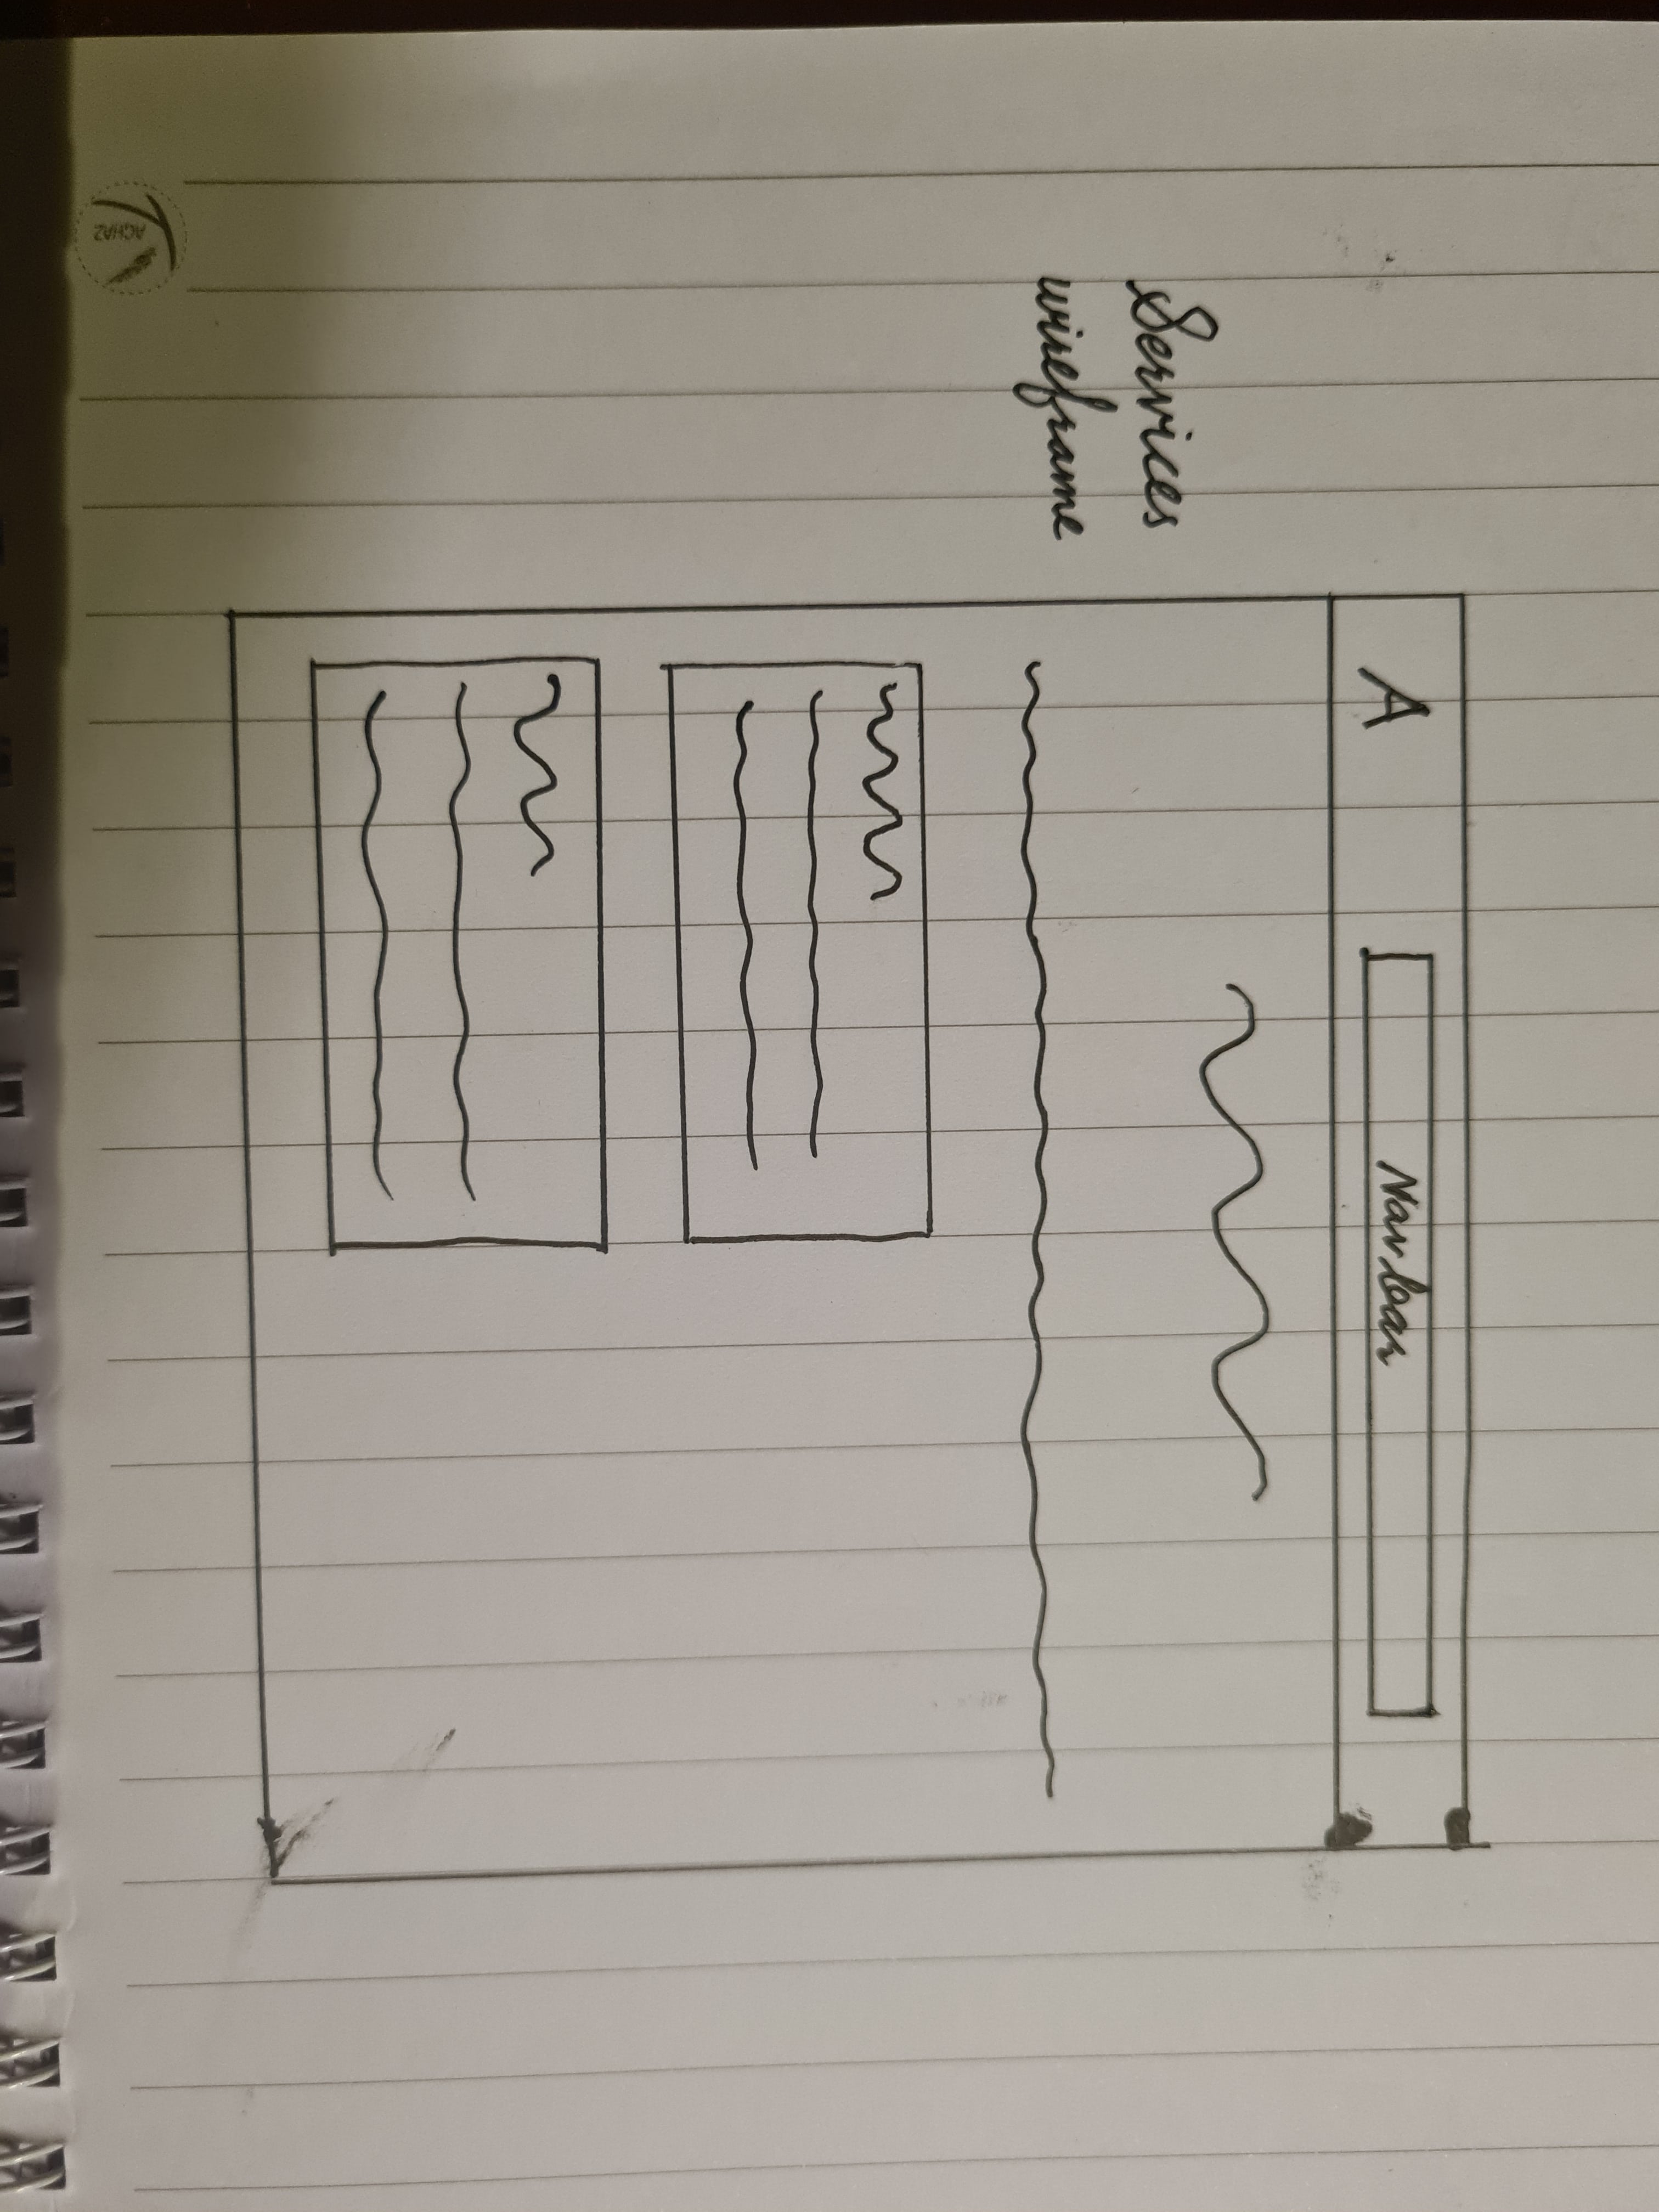 Services
wireframe
A
Navbar
AGHAZ